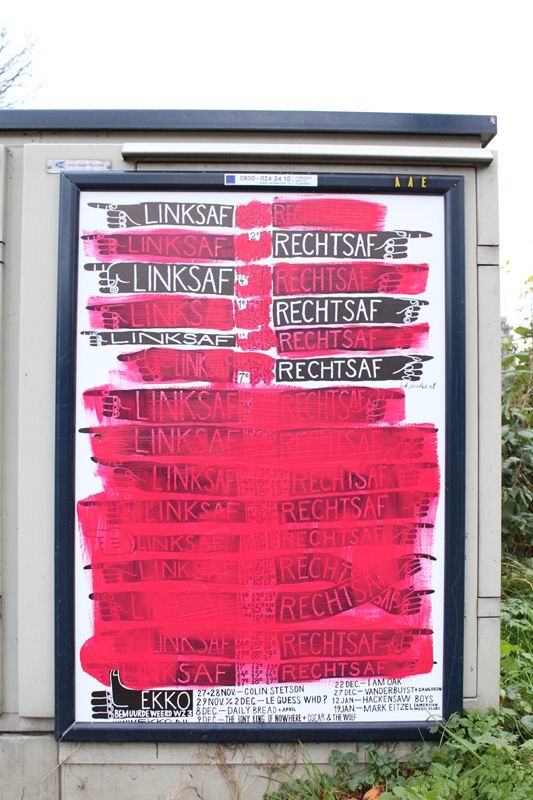 0800 - 024 24 10
AAE
LINKSAF REC
LINKSAF RECHTSAF
LINKSAF RECHTSAF
LINKS RECHTSAF
LINKSAF RECHTSAF
LINK RECHTSAF
LINKSAF RECHTSAF
LINKSAF RECHTSAF
LINKSAF RECHTSAF
LINKSAF RECHTSAF
LINKSAF RECHTSAF
LINKSAF RECHT
LINKSAF RECHTSAF
LINKSAF RECHTSAF
SAF RECHTSAF
EKKO
BEMUURDE WEERD WZ 3
27+28 NOV.— COLIN STETSON
29 NOV. ⁒ 2 DEC.— LE GUESS WHO?
8 DEC.— DAILY BREAD + APRIL
9 DEC.— THE BONY KING OF NOWHERE + OSCAR & THE WOLF
22 DEC.— I AM OAK
27 DEC.— VANDERBUYST + CAULDRON
12 JAN— HACKENSAW BOYS
19 JAN.— MARK EITZEL (AMERICAN MUSIC CLUB)